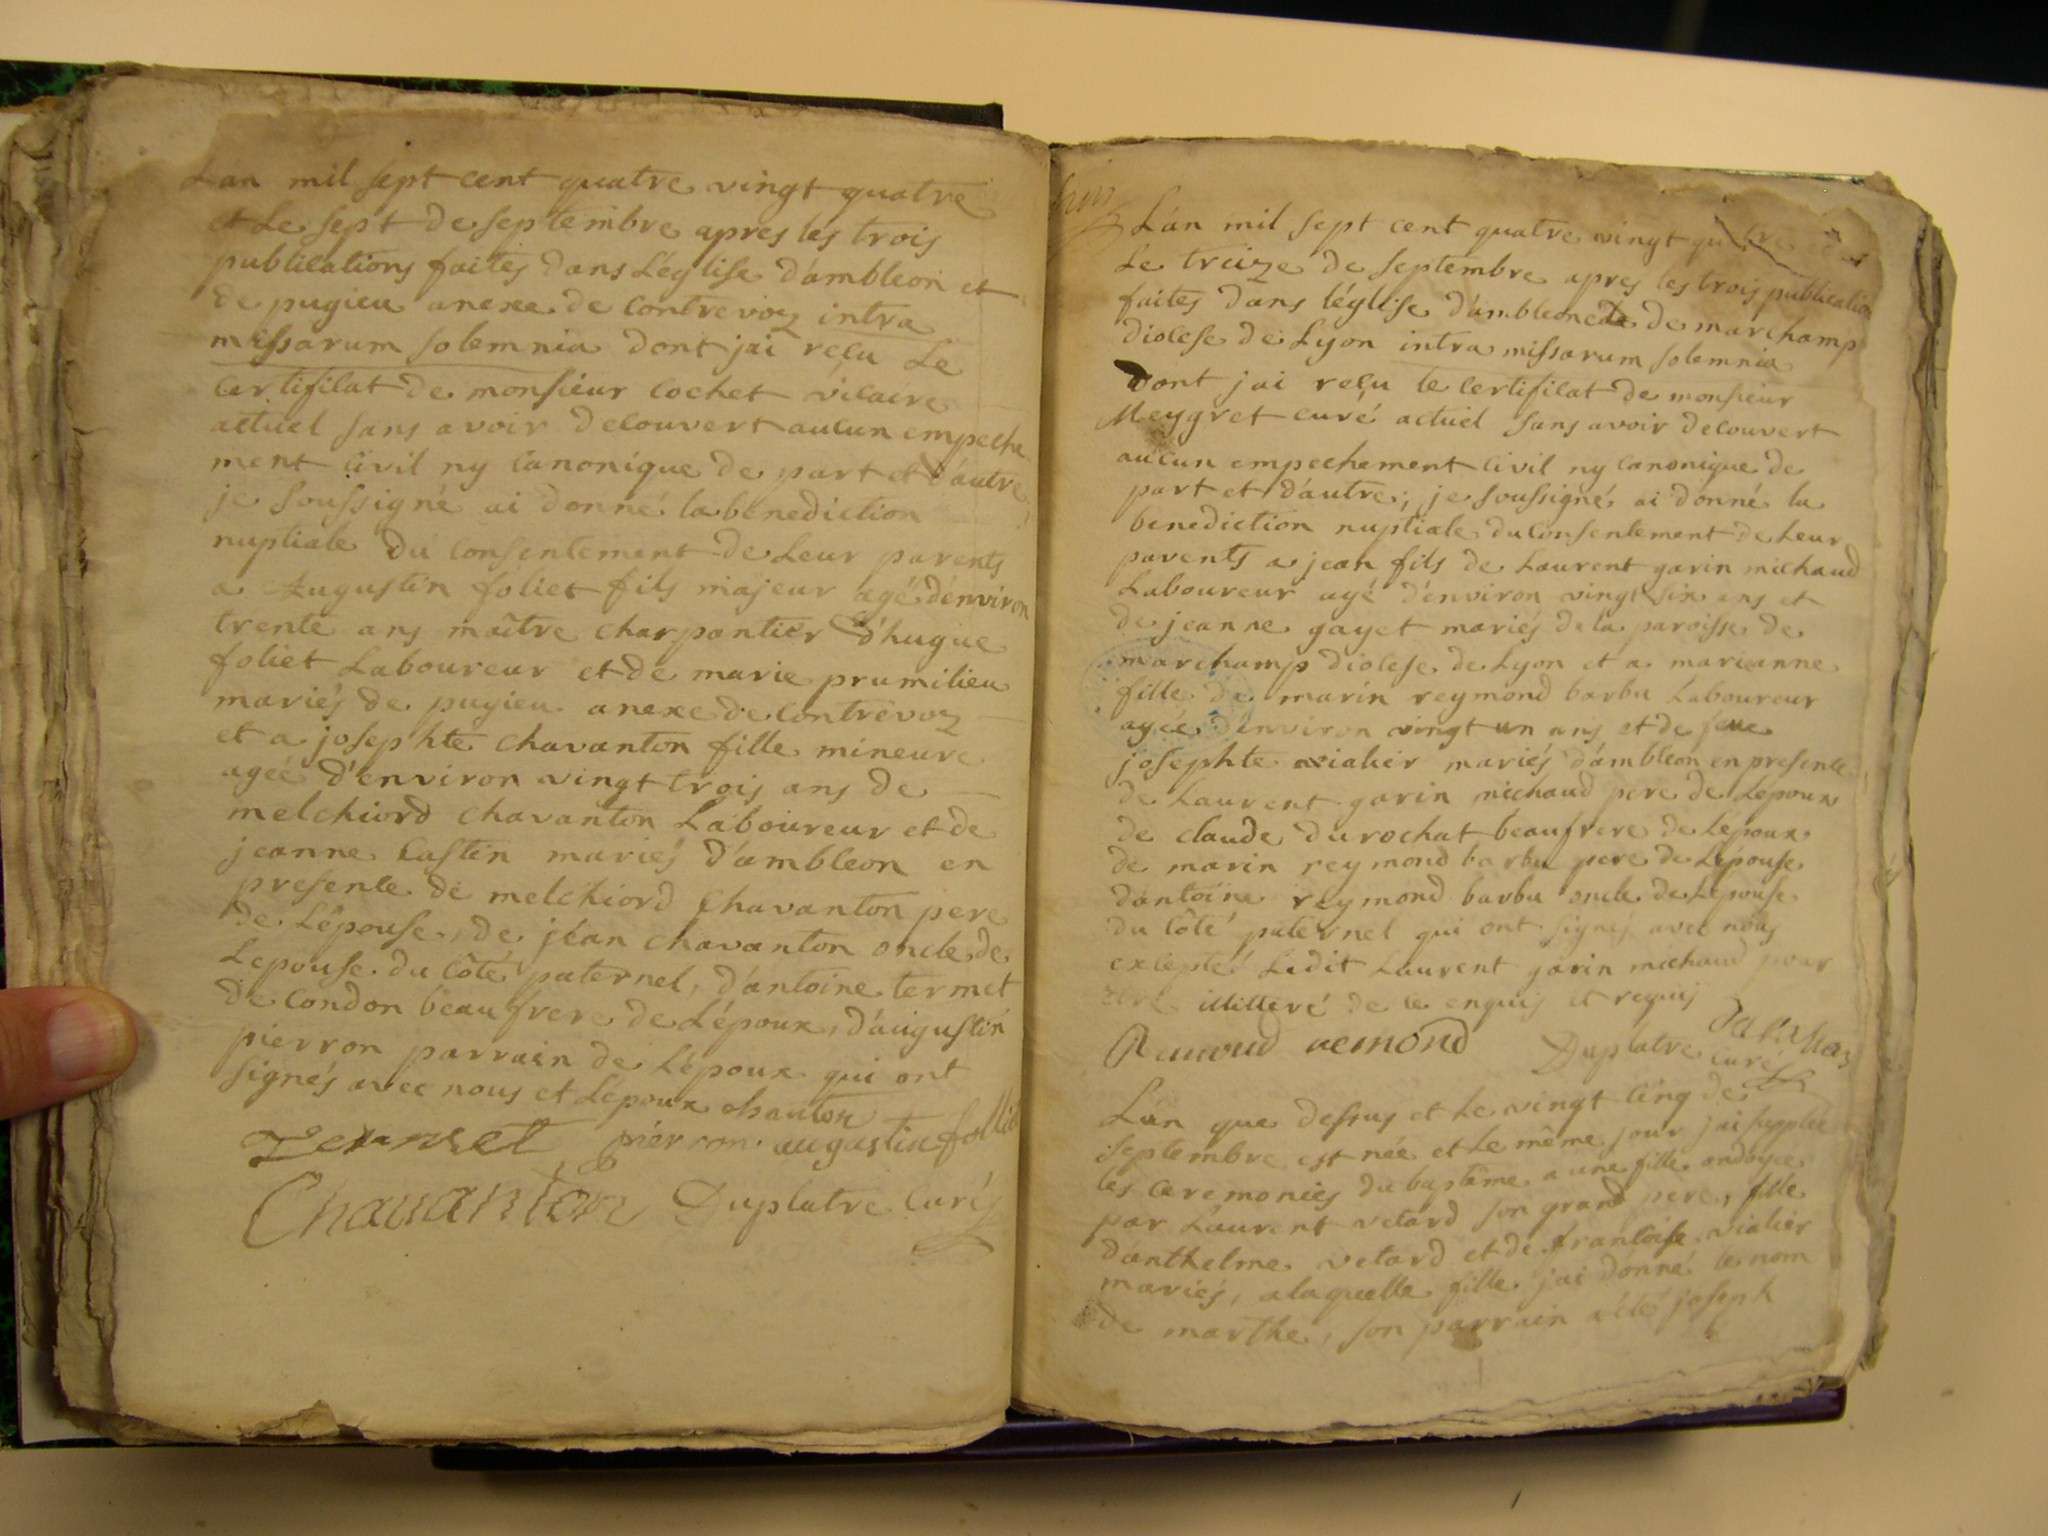 Lan mil sept cent quatre vingt quatre
et Le sept de septembre apres les trois
publications faites dans L'église d'ambleon et
de pugieu anexe de Contrevoz intra
missarum solemnia dont jai reçu Le
Certificat de monsieur cochet vicaire
actuel sans avoir decouvert aucun empeche
ment civil ny canonique de part et d'autre,
je soussigné ai donné la benediction
nuptiale du consentement de Leur parents
a Augustin foliet fils majeur agé d'environ
trente ans maître charpantier d'hugue
foliet Laboureur et de marie prumilieu
mariés de pugieu anexe de Contrevoz
et a josephte chavanton fille mineure
ageé d'environ vingt trois ans de
melchiord chavanton Laboureur et de
jeanne Castin mariés d'ambleon en
presence de melchiord Chavanton pere
de L'épouse, de jéan chavanton oncle de
Lepouse du côté paternel, d'antoine termet
de Condon beaufrere de L'époux, d'augustin
pierron parrain de L'époux qui ont
signés avec nous et L'époux chanton
Termet pierron augustin follie
Chauanton Duplatre Curé
L'an mil sept cent quatre vingt quatre et
Le treize de septembre apres les trois publicatio
faites dans l'église d'ambleon et de marchamp
diocese de Lyon intra missarum solemnia
dont jai reçu le Certificat de monsieur
Meygret curé actuel sans avoir decouvert
aucun empechement civil ny canonique de
part et d'autre, je soussigné ai donné la
benediction nuptiale du consentement de Leur
parents a jean fils de Laurent garin michaud
Laboureur agé d'environ vingt six ans et
de jeanne gayet mariés de la paroisse de
marchamp diocese de Lyon et a marianne
fille de marin reymond barbu Laboureur
ageé d'environ vingt un ans et de feue
josephte vialier mariés d'ambleon en presence
de Laurent garin michaud pere de Lepoux
de claude durochat beaufrere de Lépoux
de marin reymond barbu pere de L'épouse
d'antoine reymond barbu oncle de Lépouse
du côté paternel qui ont signés avec nous
excepté Ledit Laurent garin michaud pour
etre illitteré de ce enquis et requis
remond Duplatre curé
L'an que dessus et Le vingt cinq de
septembre est née et Le même jour jai supplée
les Ceremonies du baptême a une fille ondoyee
par Laurent vetard son grand pere, fille
d'anthelme vetard et de francoise vialier
mariés, a laquelle fille jai donné le nom
de marthe, son parrain a été joseph